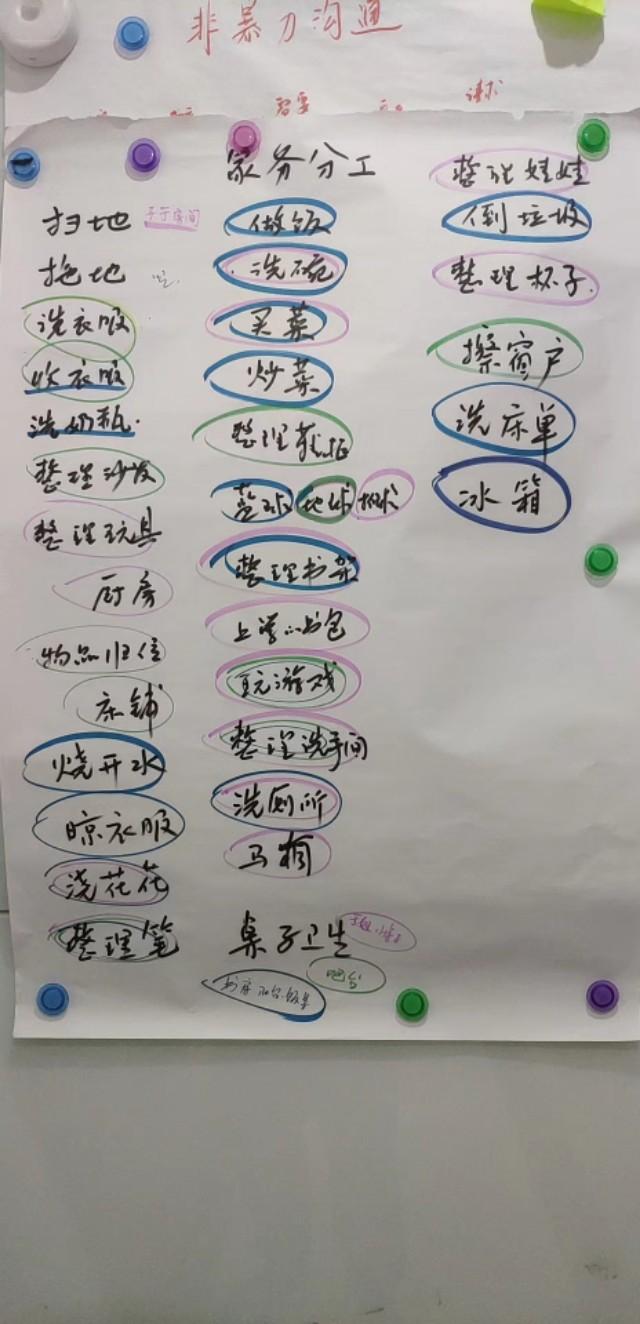 非暴力沟通
需要
请求
家务分工
扫地
拖地
洗衣服
收衣服
洗奶瓶
整理沙发
整理玩具
厨房
物品归位
床铺
烧开水
晾衣服
浇花花
整理笔
做饭
洗碗
买菜
炒菜
整理鞋柜
篮球 地球
整理书架
上学的书包
玩游戏
整理洗手间
洗厕所
马桶
桌子卫生
吧台
整理娃娃
倒垃圾
整理杯子
擦窗户
洗床单
冰箱